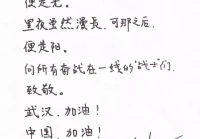 便是光。
黑夜虽然漫長，可那之后，
便是阳。
向所有奋战在一线的"战士"们，
致敬。
武汉，加油！
中国，加油！